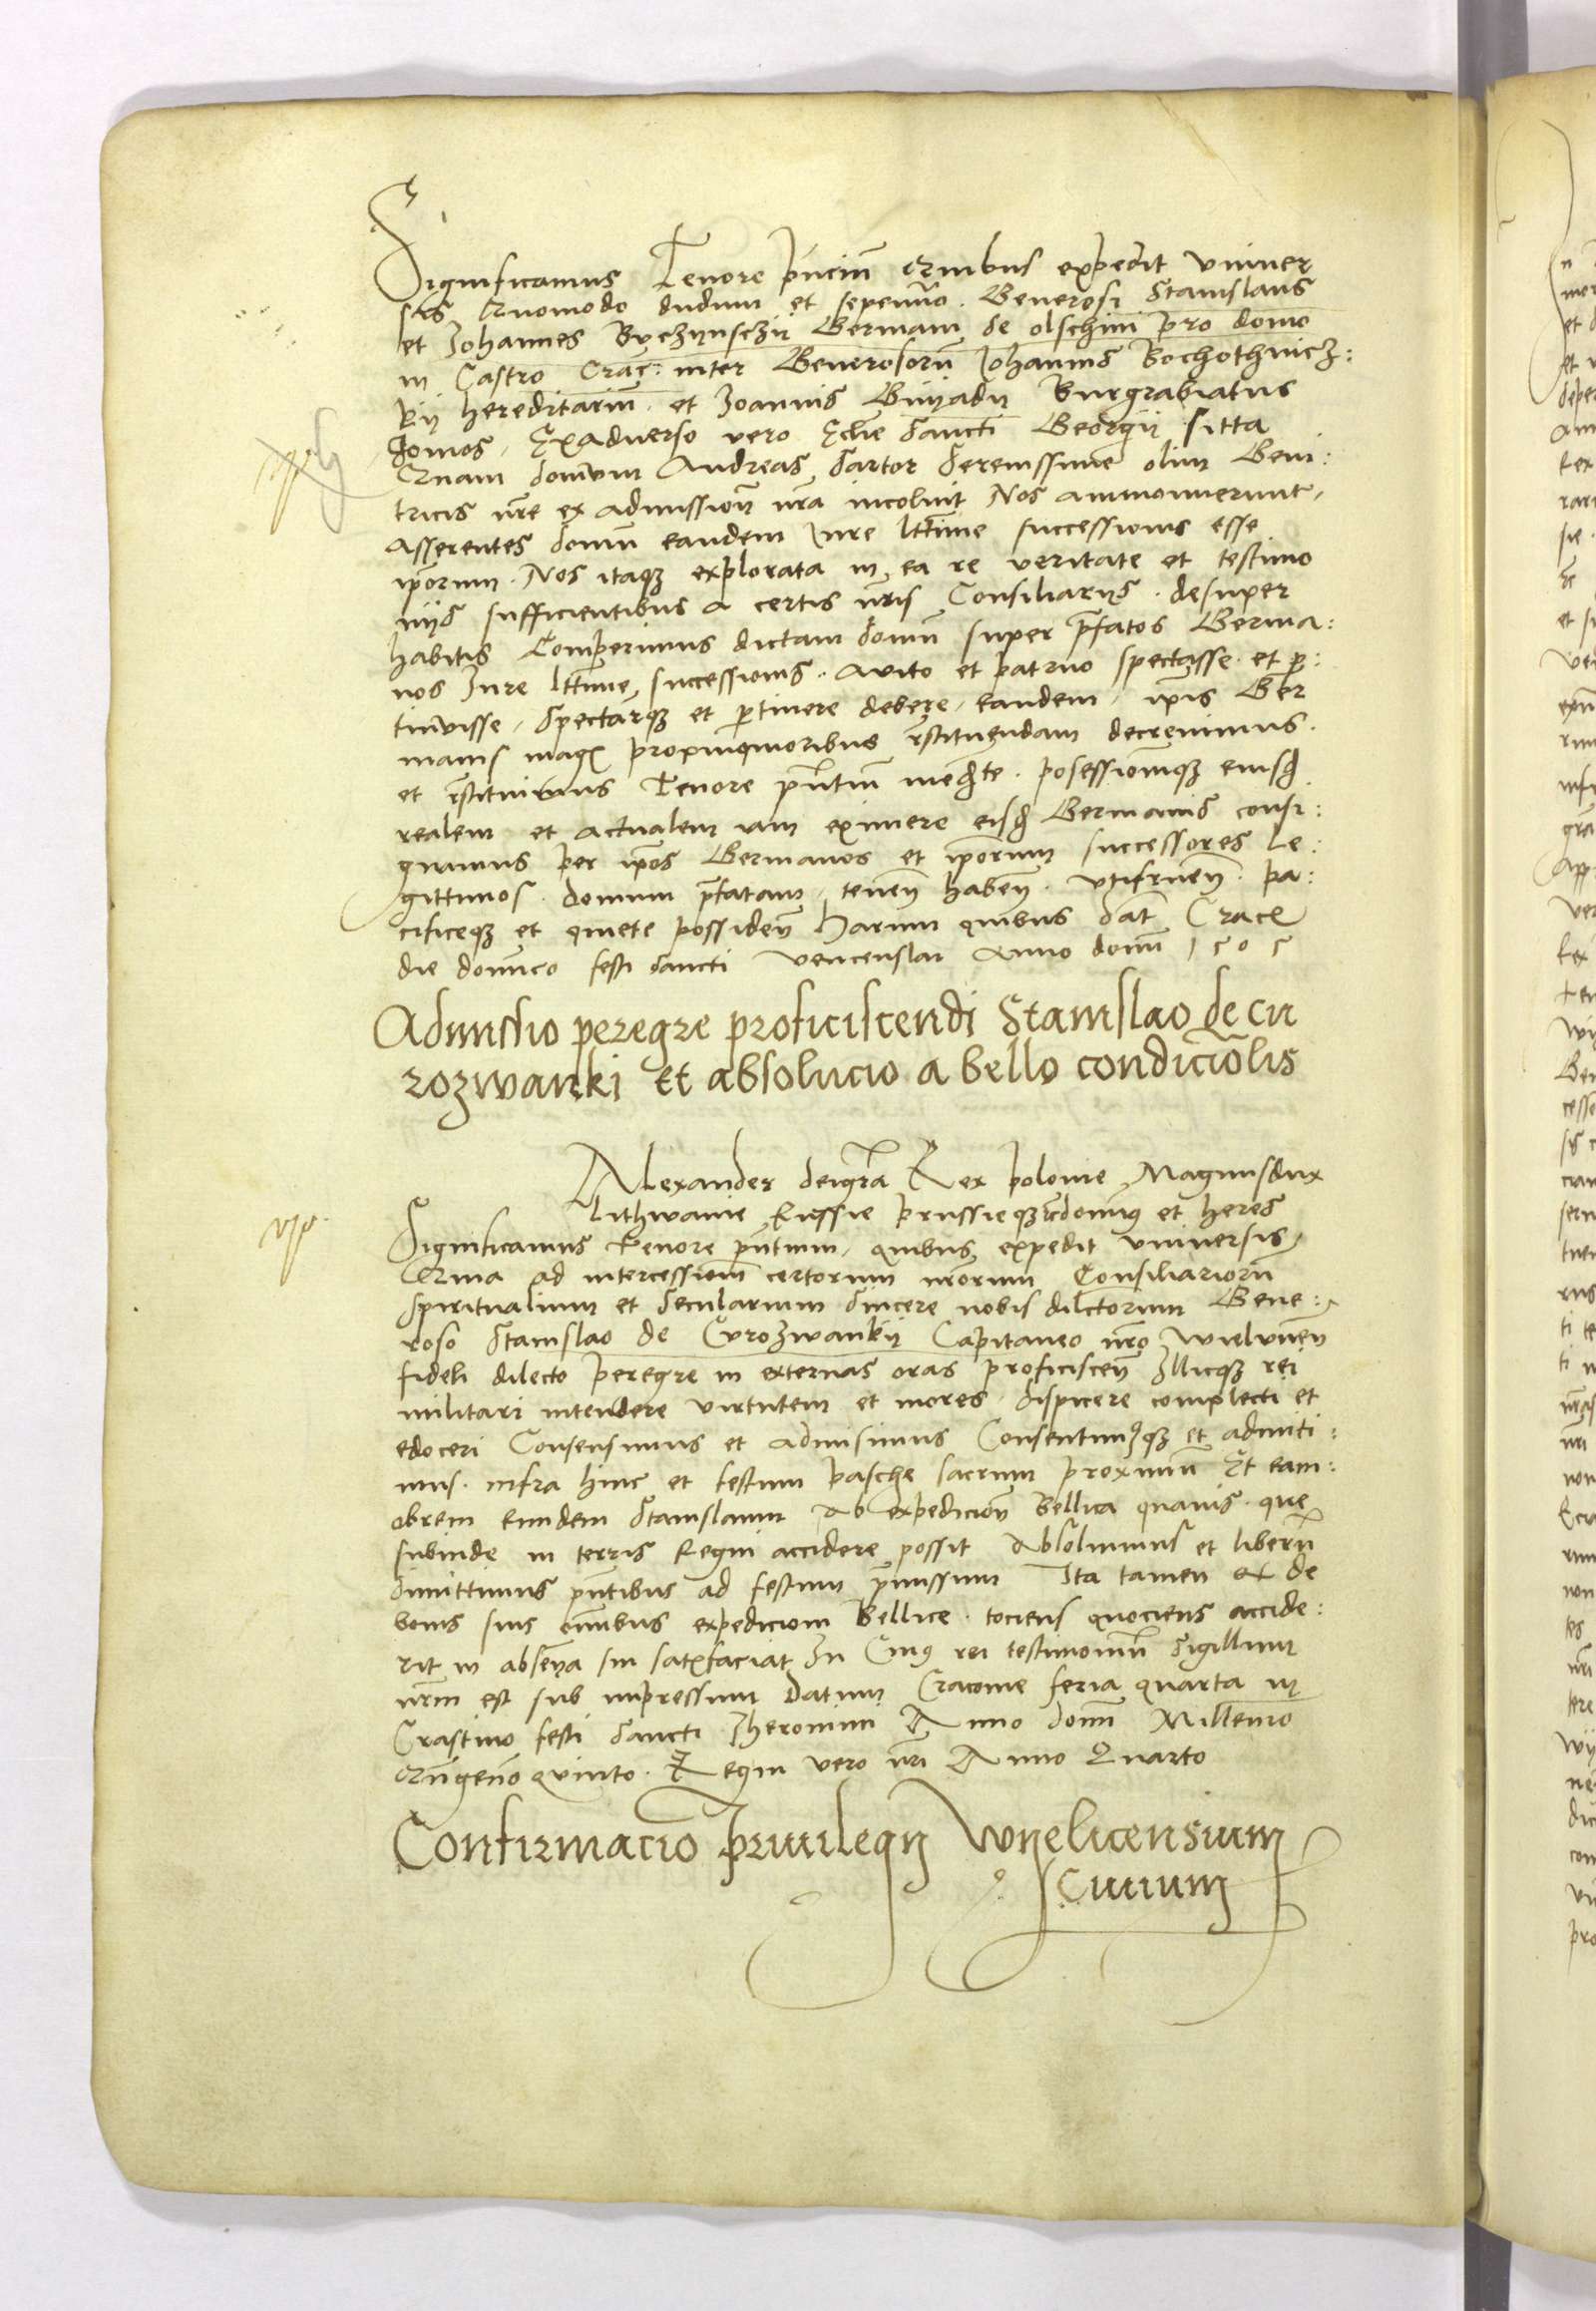 Significamus Tenore pncium Quibus expedit vniuer
sis Quomodo dudum et sepenuo. Generosi Stanislaus
et Johannes Byczynsczii Germani de olschini pro domo
in Castro Crac: inter Generosorum Johannis Bochothnicz:
kij hereditarium. et Joannis Gnyady Burgrabiatus
domos, Exaduerso vero Eclie Sancti Georgii sitta
Quam domum Andreas Sartor Serenissime olim Geni:
tricis nre ex admissione nra incoluit Nos ammonuerunt,
Asserentes domum eandem Jure lttime successionis esse
iporum. Nos itaqz explorata in ea re veritate et testimo
nijs sufficientibus a certis nris Consiliarijs. desuper
habitis Comperimus dictam domum super pfatos Germa:
nos Jure lttime successionis. Auito et patruo spectasse. et p:
tinuisse, Spectareqz et ptinere debere, eandem, ipis Ger
manis magis propinquioribus rstituendam decreuimus.
et rstituimus Tenore pntium mediante. posessionemqz eiusd
realem et actualem iam eximere eisd Germanis consi:
gnimus per ipos Germanos et iporum successores le:
gittimos. domum pfatam, tenen haben. vtifruen. pa:
cificeqz et quiete possiden Harum quibus dat Crace
die dominco festi Sancti Vencenslai Anno domi 1505
Admissio peregre proficiscendi Stanislao de cu
rozwanki et absolucio a bello condicionalis
Alexander deigra Rex polonie Magnusdux
Lithwanie Russie prussieqz etc dominus et heres
Significamus Tenore pntium, quibus expedit vniuersis,
Quia ad intercessionem certorum nrorum Consiliariorum
Spiritualium et Secularium Sincere nobis dilctorum Gene:
roso Stanislao de Curozwankij Capitaneo nro wielunen
fideli dilecto peregre in externas oras proficiscen Illicqz rei
militari intendere virtutem et mores. dispicere complecti et
edoceri Consensimus et Admisimus Consentimusqz et admitti:
mus. infra hinc et festum pasche sacrum proximum Et eam:
obrem eundem Stanislaum Ab expedicion Bellica quauis. que
subinde in terris Regni accidere possit Absoluimus et liberum
dimittimus pntibus ad festum pmissum Ita tamen ut de
bonis suis omibus expedicioni Bellice. tociens quociens accide:
rit in absencia sui satisfaciat In Cuius rei testimonium Sigillum
nrm est sub impressum Datum Cracovie feria quarta in
Crastino festi Sancti Iheronimi Anno domi Millesimo
Quingenmo quinto. Regni vero nri Anno Quarto
Confirmacio Priuilegij Wyelicensium
Ciuium